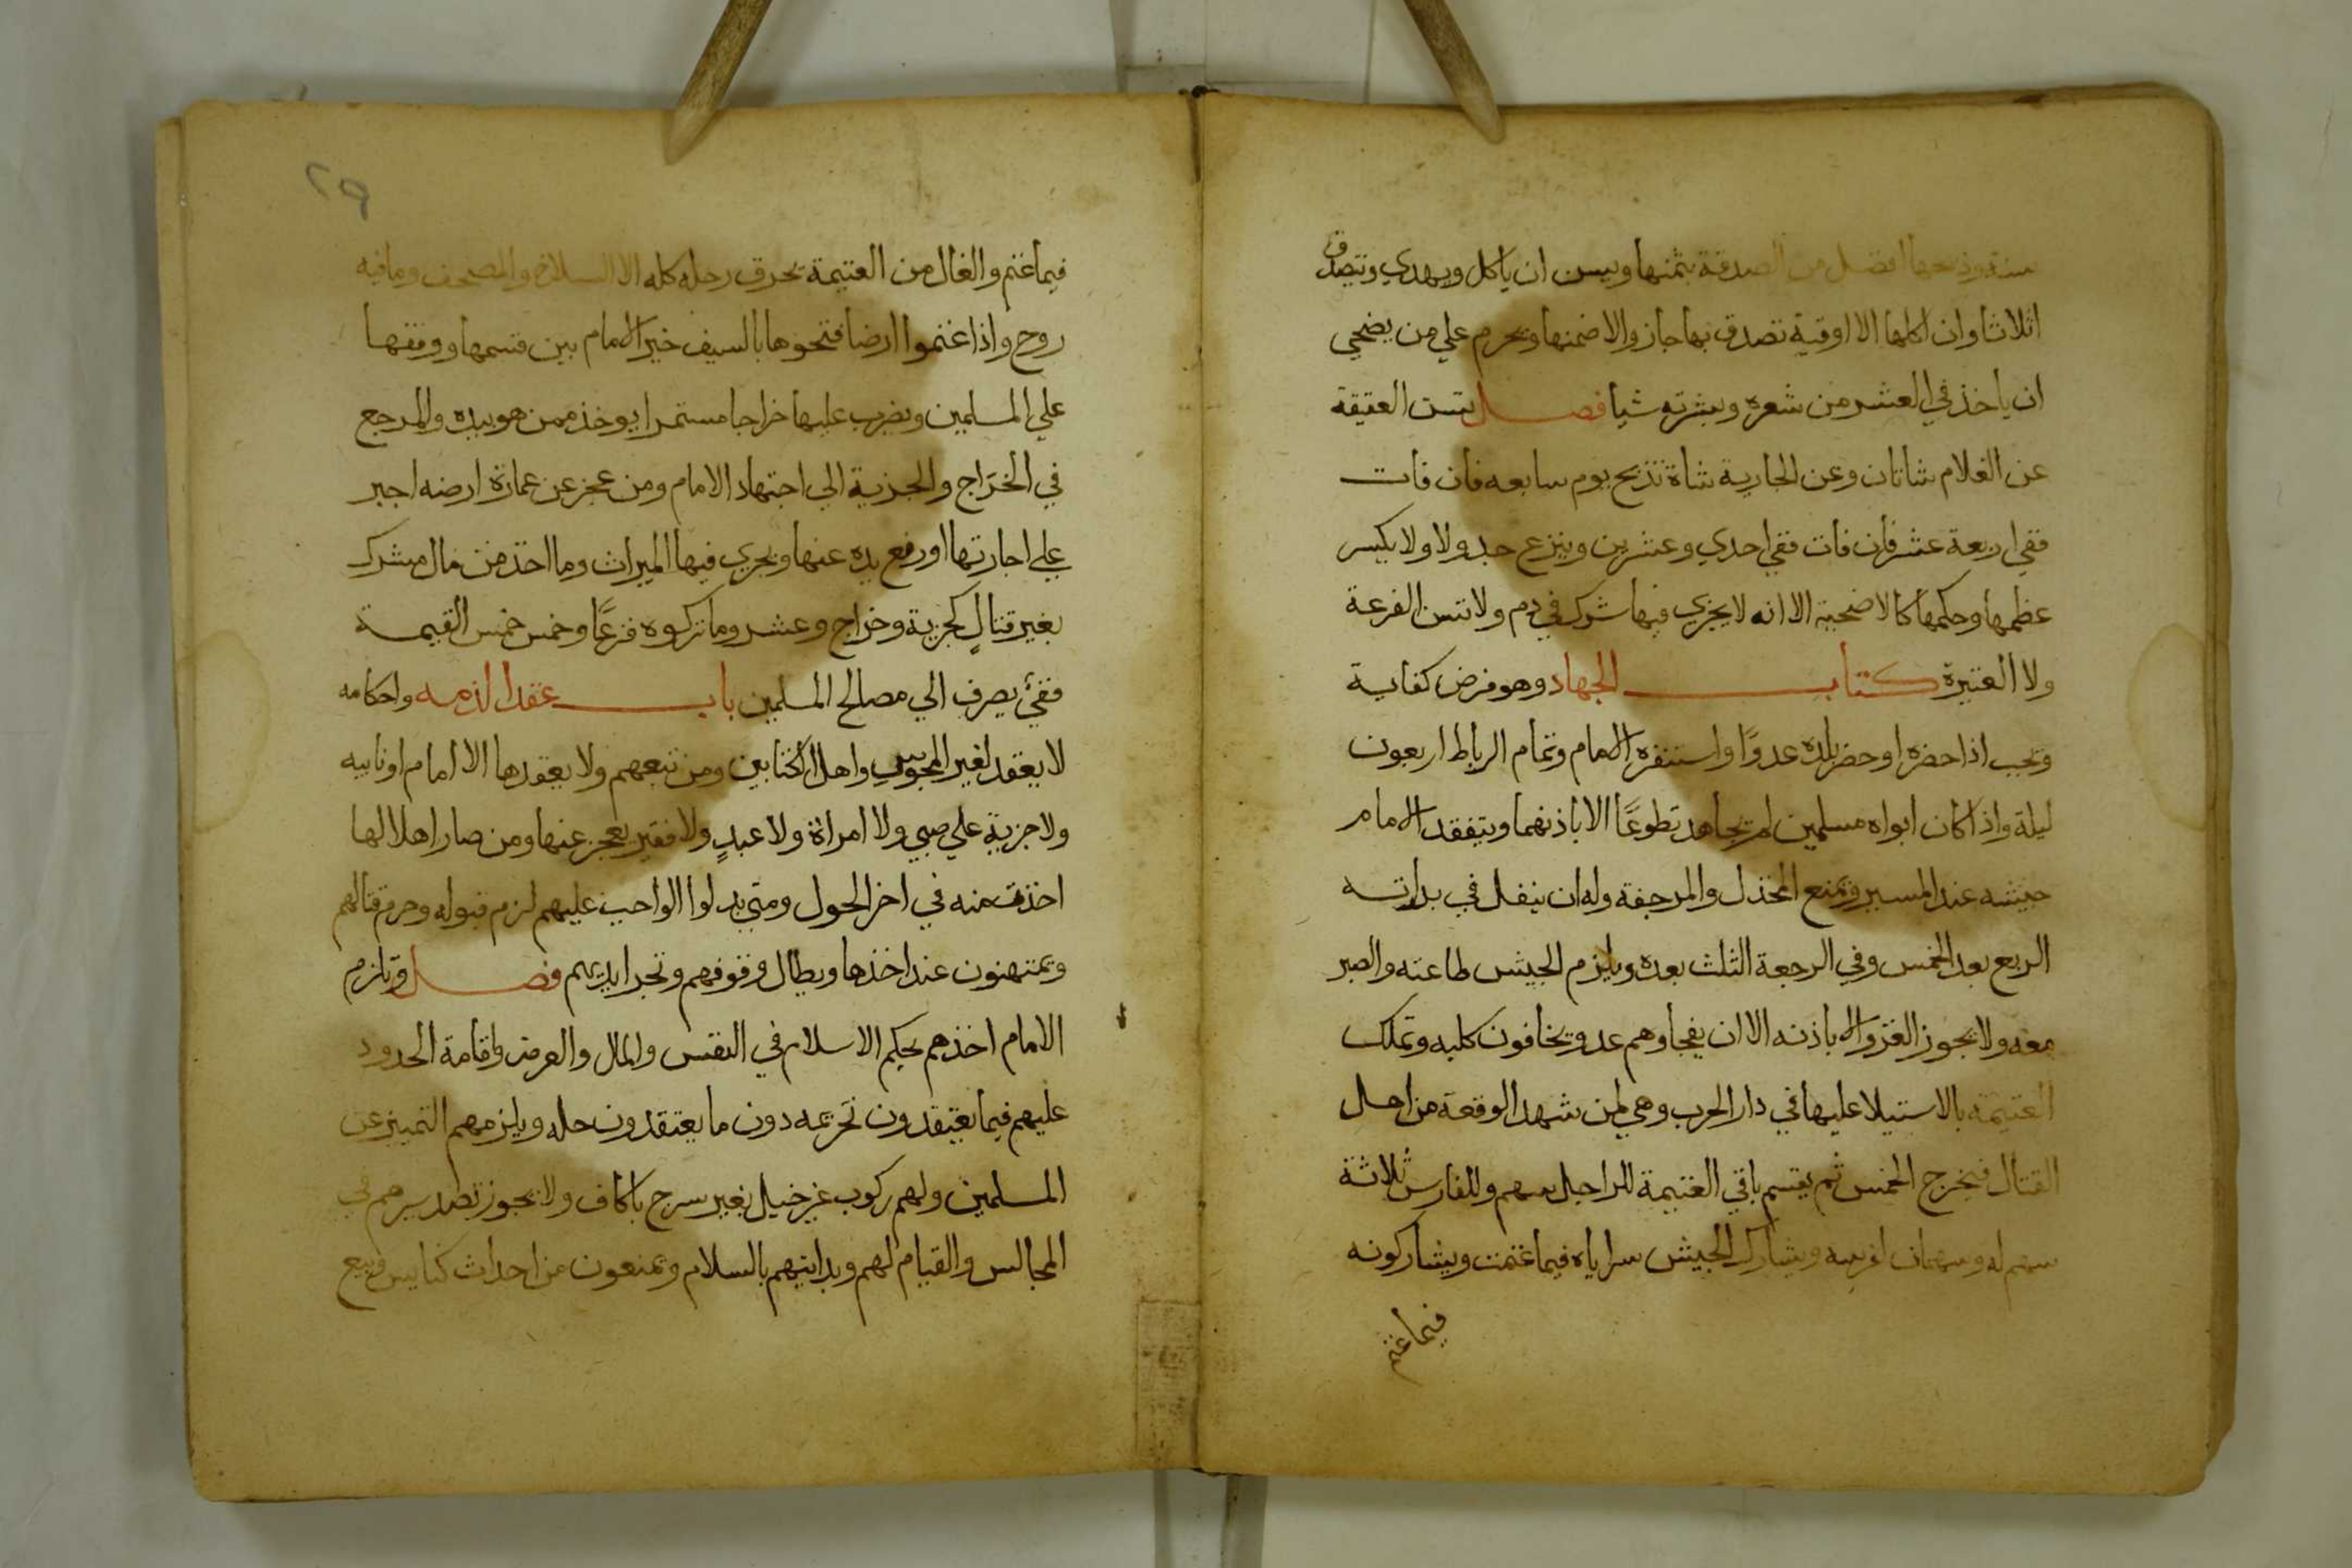 سنة وذبحها افضل من الصدقة بثمنها ويسن ان ياكل ويهدي ويتصدق
اثلاثا وان اكلها الا اوقية تصدق بها جاز والا ضمنها ويحرم علي من يضحي
ان ياخذ في العشر من شعره وبشرته شيا فصل تسن العقيقة
عن الغلام شاتان وعن الجارية شاة تذبح يوم سابعه فان فات
ففي اربعة عشر فان فات ففي احدي وعشرين وينزع جدولا ولا يكسر
عظمها وحكمها كالاضحية الا انه لا يجزي فيها شرك في دم ولا تسن الفرعة
ولا العتيرة كتاب الجهاد وهو فرض كفاية
ويجب اذا حضره او حضر بلده عدوا واستنفره الامام وتمام الرباط اربعون
ليلة واذا كان ابواه مسلمين لم يجاهد تطوعًا الا باذنهما ويتفقد الامام
جيشه عند المسير ويمنع المخذل والمرجفة وله ان ينفل في بداته
الربع بعد الخمس وفي الرجعة الثلث بعده ويلزم الجيش طاعته والصبر
معه ولا يجوز الغزو الا باذنه الا ان يفجاوهم عدو يخافون كلبه وتملك
الغنيمة بالاستيلا عليها في دار الحرب وهي لمن شهد الوقعة من اهل
القتال فيخرج الخمس ثم يقسم باقي الغنيمة للراجل سهم وللفارس ثلاثة
سهم له وسهمان لفرسه ويشارك الجيش سراياه فيما غنمت ويشاركونه
فيما غنم
٢٩
فيما غنم والغال من الغنيمة يحرق رحله كله الا السلاح والمصحف وما فيه
روح واذا غنموا ارضا فتحوها بالسيف خير الامام بين قسمها ووقفها
علي المسلمين ويضرب عليها خراجا مستمرا يوخذ ممن هو بيده والمرجع
في الخَراج والجزية الي اجتهاد الامام ومن عجز عن عمارة ارضه اجبر
علي اجارتها او رفع يده عنها ويجري فيها الميراث وما اخذ من مال مشرك
بغير قتالٍ كجزية وخراج وعشر وما تركوه فزعًا وخمس خمس الغنيمة
ففئ يصرف الي مصالح المسلمين باب عقد الذمه واحكامه
لا يعقد لغير المجوس واهل الكتابين ومن تبعهم ولا يعقدها الا امام او نايبه
ولا جزية علي صبي ولا امراة ولا عبدٍ ولا فقير يعجز عنها ومن صار اهلا لها
اخذت منه في اخر الحول ومتي بدلوا الواجب عليهم لزم قبوله وحرم قتالهم
ويمتهنون عند اخذها ويطال وقوفهم وتجر ايديهم فصل ويلزم
الامام اخذهم بحكم الاسلام في النفس والمال والعرض واقامة الحدود
عليهم فيما يعتقدون تحريمه دون ما يعتقدون حله ويلزمهم التمييز عن
المسلمين ولهم ركوب غير خيل بغير سرج باكاف ولا يجوز تصديرهم في
المجالس والقيام لهم وبدايتهم بالسلام ويمنعون من احداث كنايس وبيع